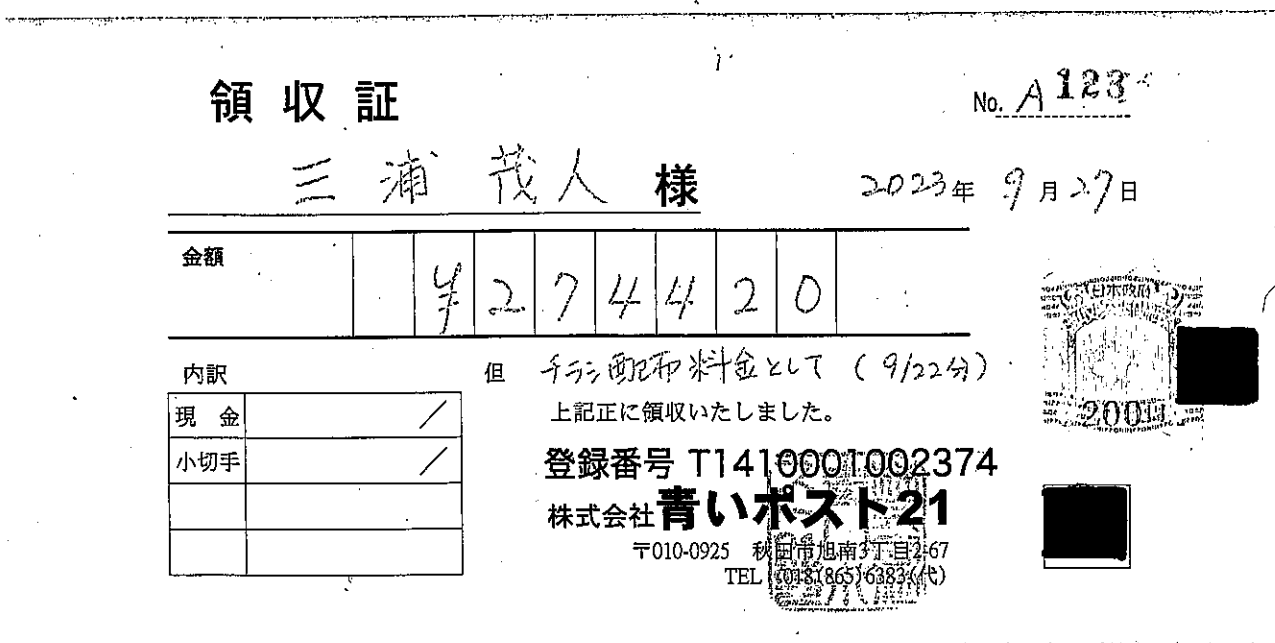 領収証
No. A 123
三浦 茂人 様
2023年 9月27日
金額 ¥274420
内訳
但 チラシ配布料金として (9/22分)
現金 /
上記正に領収いたしました。
小切手 /
登録番号 T1410001002374
株式会社青いポスト21
〒010-0925 秋田市旭南3丁目2-67
TEL (018)(865)6383(代)
日本政府
200円